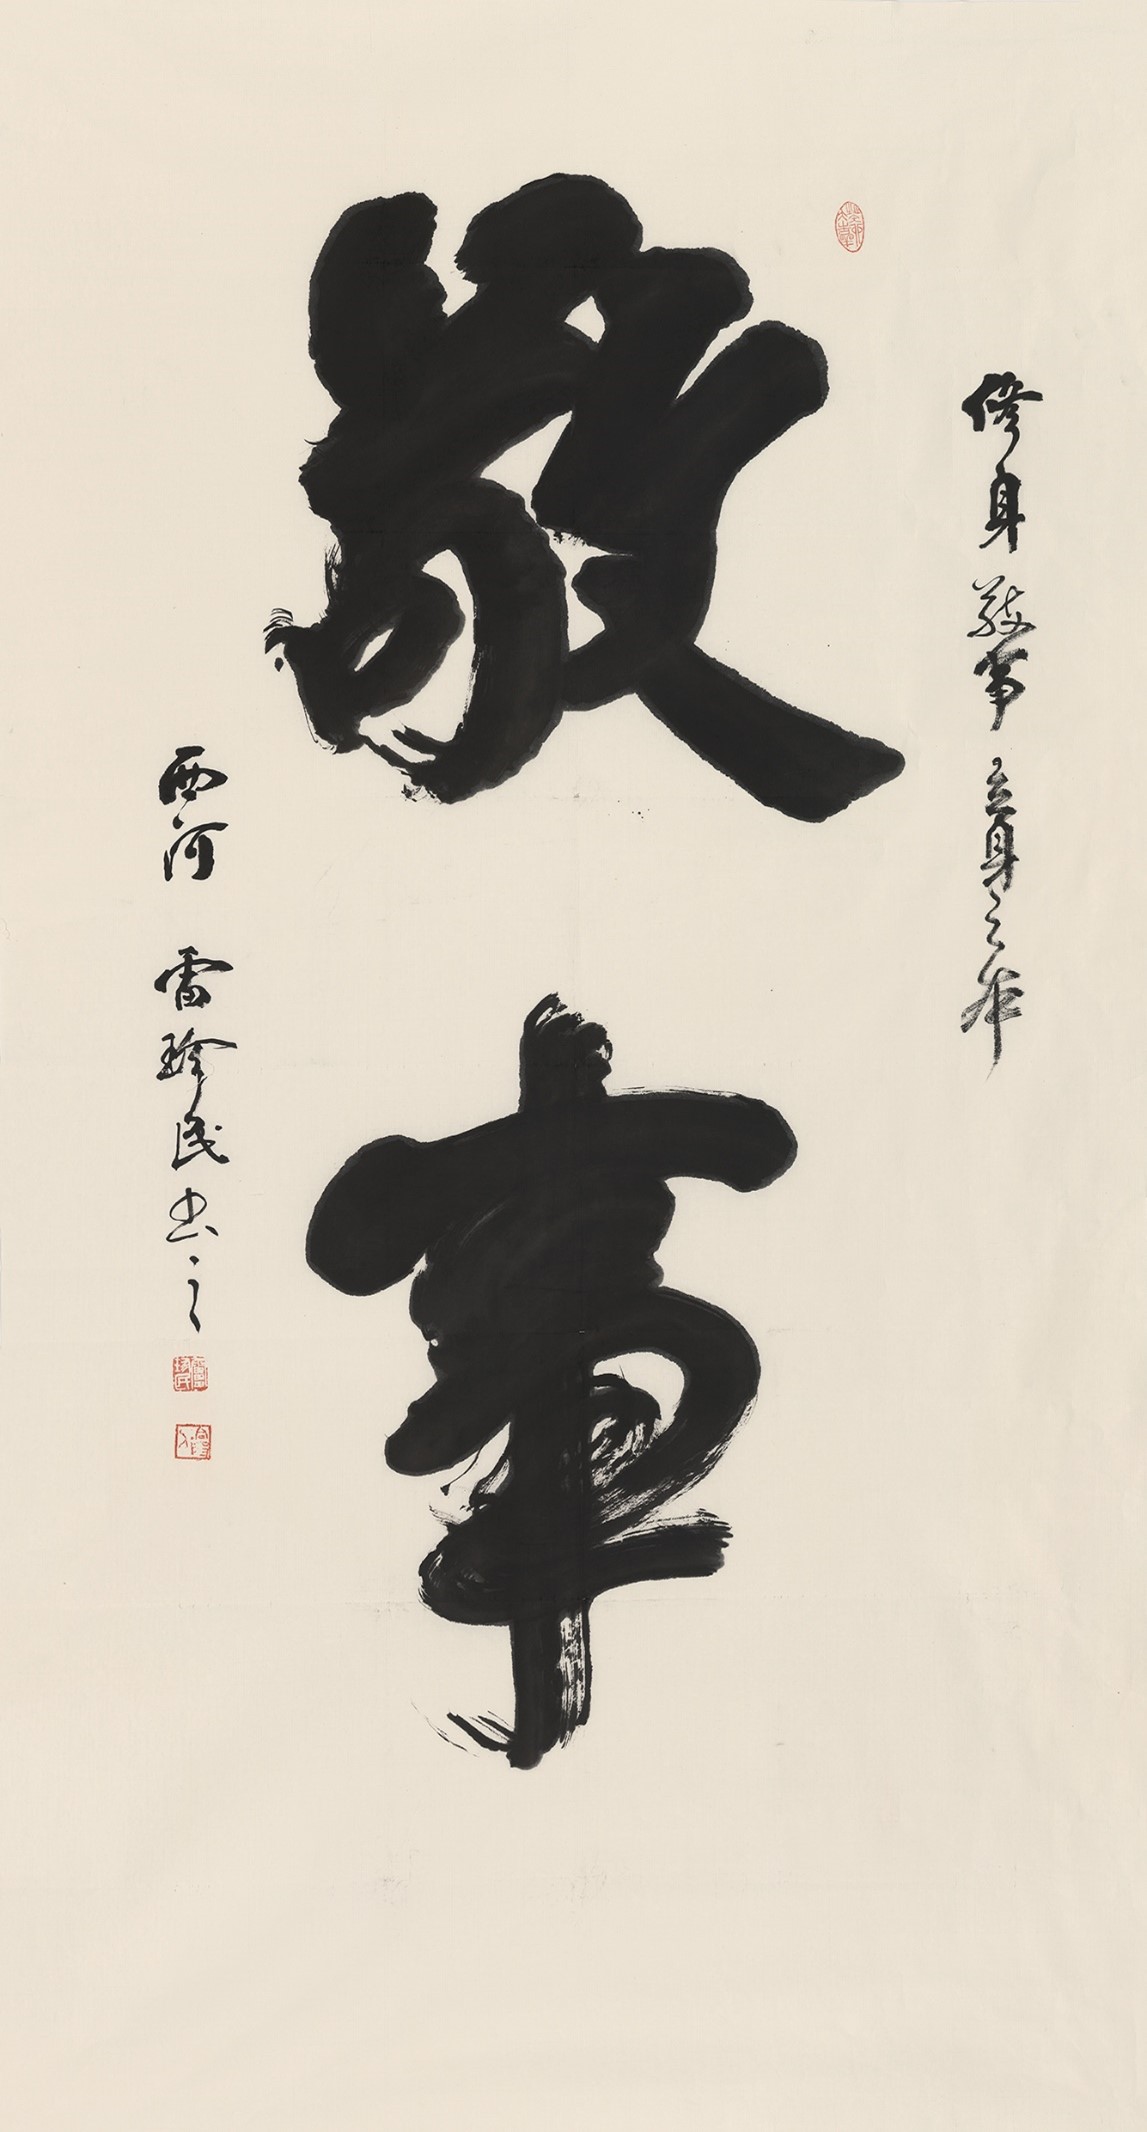 修身敬事立身之本
敬事
西河 雷珍民书之
雷珍民